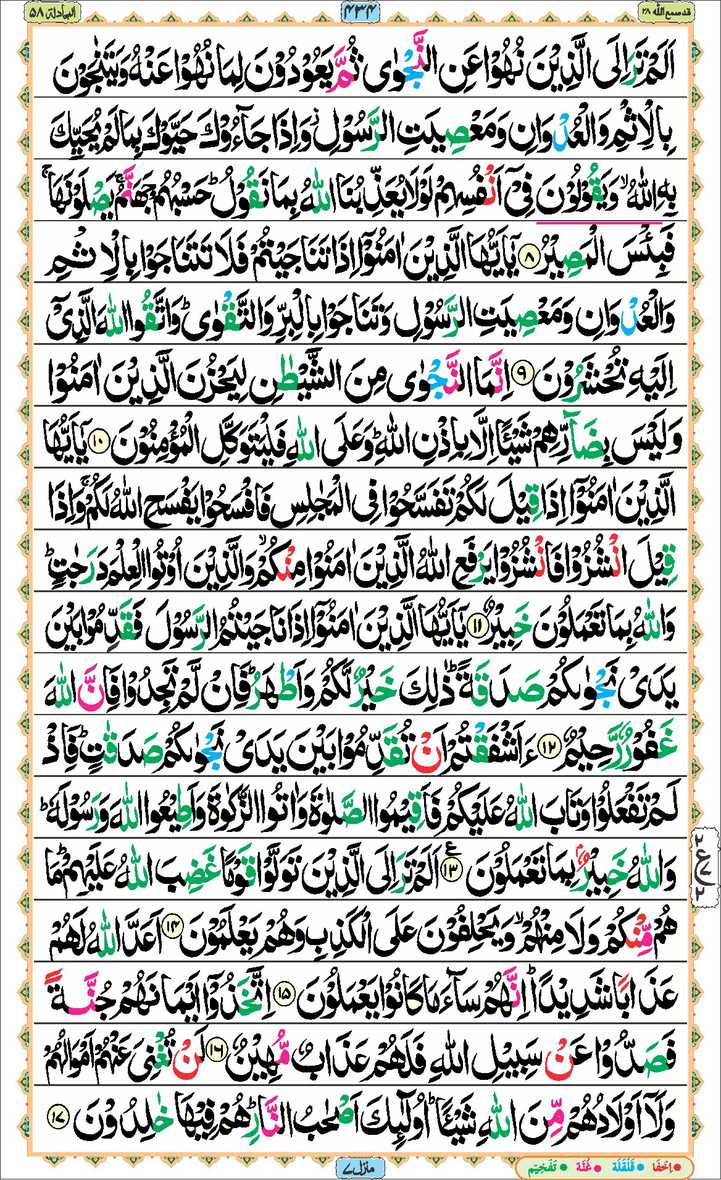 قد سمع الله ٢٨
٤٣٤
المجادلة ٥٨
اَلَمْ تَرَ اِلَى الَّذِيْنَ نُهُوْا عَنِ النَّجْوٰى ثُمَّ يَعُوْدُوْنَ لِمَا نُهُوْا عَنْهُ وَيَتَنٰجَوْنَ
بِالْاِثْمِ وَالْعُدْوَانِ وَمَعْصِيَتِ الرَّسُوْلِ ۫ وَاِذَا جَآءُوْكَ حَيَّوْكَ بِمَا لَمْ يُحَيِّكَ
بِهِ اللّٰهُ ۙ وَيَقُوْلُوْنَ فِيْۤ اَنْفُسِهِمْ لَوْلَا يُعَذِّبُنَا اللّٰهُ بِمَا نَقُوْلُ ؕ حَسْبُهُمْ جَهَنَّمُ ۚ يَصْلَوْنَهَا ۚ
فَبِئْسَ الْمَصِيْرُ ۸ يٰۤاَيُّهَا الَّذِيْنَ اٰمَنُوْۤا اِذَا تَنَاجَيْتُمْ فَلَا تَتَنَاجَوْا بِالْاِثْمِ
وَالْعُدْوَانِ وَمَعْصِيَتِ الرَّسُوْلِ وَتَنَاجَوْا بِالْبِرِّ وَالتَّقْوٰى ؕ وَاتَّقُوا اللّٰهَ الَّذِيْۤ
اِلَيْهِ تُحْشَرُوْنَ ۹ اِنَّمَا النَّجْوٰى مِنَ الشَّيْطٰنِ لِيَحْزُنَ الَّذِيْنَ اٰمَنُوْا
وَلَيْسَ بِضَآرِّهِمْ شَيْـًٔا اِلَّا بِاِذْنِ اللّٰهِ ؕ وَعَلَى اللّٰهِ فَلْيَتَوَكَّلِ الْمُؤْمِنُوْنَ ۱۰ يٰۤاَيُّهَا
الَّذِيْنَ اٰمَنُوْۤا اِذَا قِيْلَ لَكُمْ تَفَسَّحُوْا فِى الْمَجٰلِسِ فَافْسَحُوْا يَفْسَحِ اللّٰهُ لَكُمْ ۚ وَاِذَا
قِيْلَ انْشُزُوْا فَانْشُزُوْا يَرْفَعِ اللّٰهُ الَّذِيْنَ اٰمَنُوْا مِنْكُمْ ۙ وَالَّذِيْنَ اُوْتُوا الْعِلْمَ دَرَجٰتٍ ؕ
وَاللّٰهُ بِمَا تَعْمَلُوْنَ خَبِيْرٌ ۱۱ يٰۤاَيُّهَا الَّذِيْنَ اٰمَنُوْۤا اِذَا نَاجَيْتُمُ الرَّسُوْلَ فَقَدِّمُوْا بَيْنَ
يَدَىْ نَجْوٰىكُمْ صَدَقَةً ؕ ذٰلِكَ خَيْرٌ لَّكُمْ وَاَطْهَرُ ؕ فَاِنْ لَّمْ تَجِدُوْا فَاِنَّ اللّٰهَ
غَفُوْرٌ رَّحِيْمٌ ۱۲ ءَاَشْفَقْتُمْ اَنْ تُقَدِّمُوْا بَيْنَ يَدَىْ نَجْوٰىكُمْ صَدَقٰتٍ ؕ فَاِذْ
لَمْ تَفْعَلُوْا وَتَابَ اللّٰهُ عَلَيْكُمْ فَاَقِيْمُوا الصَّلٰوةَ وَاٰتُوا الزَّكٰوةَ وَاَطِيْعُوا اللّٰهَ وَرَسُوْلَهٗ ؕ
وَاللّٰهُ خَبِيْرٌۢ بِمَا تَعْمَلُوْنَ ۱۳ اَلَمْ تَرَ اِلَى الَّذِيْنَ تَوَلَّوْا قَوْمًا غَضِبَ اللّٰهُ عَلَيْهِمْ ؕ مَا
هُمْ مِّنْكُمْ وَلَا مِنْهُمْ ۙ وَيَحْلِفُوْنَ عَلَى الْكَذِبِ وَهُمْ يَعْلَمُوْنَ ۱۴ اَعَدَّ اللّٰهُ لَهُمْ
عَذَابًا شَدِيْدًا ؕ اِنَّهُمْ سَآءَ مَا كَانُوْا يَعْمَلُوْنَ ۱۵ اِتَّخَذُوْۤا اَيْمَانَهُمْ جُنَّةً
فَصَدُّوْا عَنْ سَبِيْلِ اللّٰهِ فَلَهُمْ عَذَابٌ مُّهِيْنٌ ۱۶ لَنْ تُغْنِىَ عَنْهُمْ اَمْوَالُهُمْ
وَلَاۤ اَوْلَادُهُمْ مِّنَ اللّٰهِ شَيْـًٔا ؕ اُولٰٓئِكَ اَصْحٰبُ النَّارِ ؕ هُمْ فِيْهَا خٰلِدُوْنَ ۱۷
منزل ٧
اِخفَا قَلقَلَة غُنَّة تَفخِيم